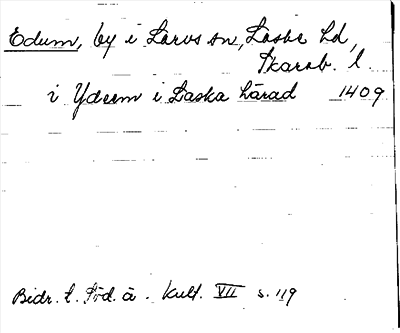 Edum, by i Larvs sn, Laske hd,
Skarab. l.
i Ydem i Laska härad 1409
Bidr. t. Söd. ä. Kult. VII s. 119